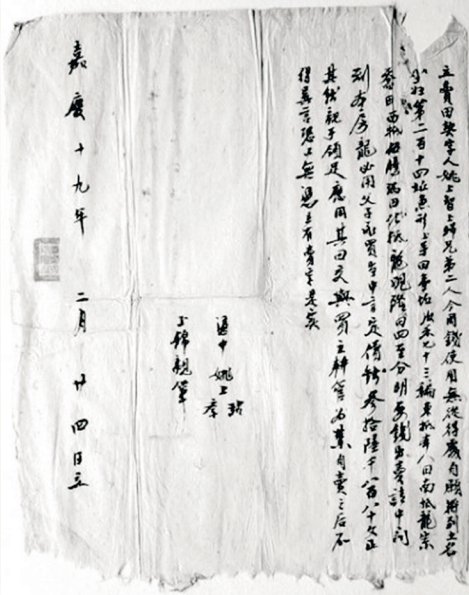 立賣田契字人姚上智上錦兄弟二人今因錢使用無從得處自願將到土名
第二百十四坵魚形上等田壹坵收禾九十三稨東抵人田南抵龍宗
田西抵伍勝瑞田北抵龍現陞田四至分明要錢出賣請中問
到本房龍必用父子承買當中言定價錢叁拾陸千八百八十文正
其錢親手領足應用其田交與買主耕管為業自賣之后不
得異言恐上無憑立有賣字是實
憑中 姚上
上錦親筆
嘉慶十九年 二月 廿四日立